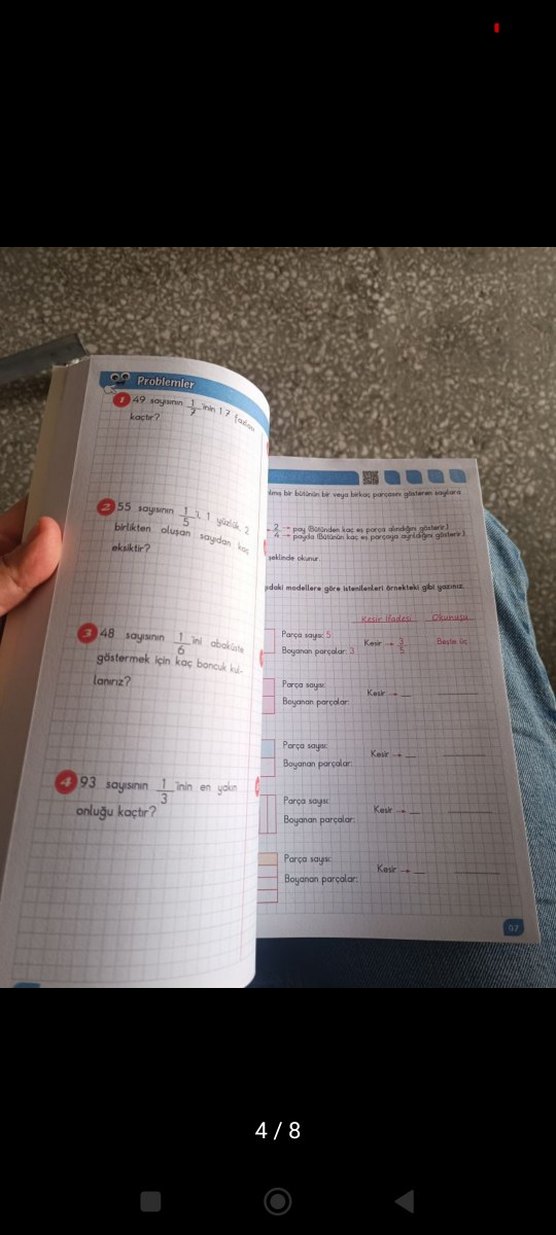 Problemler
1 49 sayısının 1/7 'inin 17 fazlası
kaçtır?
2 55 sayısının 1/5 'i, 1 yüzlük, 2
birlikten oluşan sayıdan kaç
eksiktir?
3 48 sayısının 1/6 'ini abaküste
göstermek için kaç boncuk kul-
lanırız?
4 93 sayısının 1/3 'inin en yakın
onluğu kaçtır?
bir bütünün bir veya birkaç parçasını gösteren sayılara
2 → pay (Bütünden kaç eş parça alındığını gösterir.)
4 → payda (Bütünün kaç eş parçaya ayrıldığını gösterir.)
şeklinde okunur.
modellere göre istenilenleri örnekteki gibi yazınız.
Kesir İfadesi Okunuşu
Parça sayısı: 5
Boyanan parçalar: 3
Kesir → 3/5
Beşte üç
Parça sayısı:
Boyanan parçalar:
Kesir →
Parça sayısı:
Boyanan parçalar:
Kesir →
Parça sayısı:
Boyanan parçalar:
Kesir →
Parça sayısı:
Boyanan parçalar:
Kesir →
4 / 8